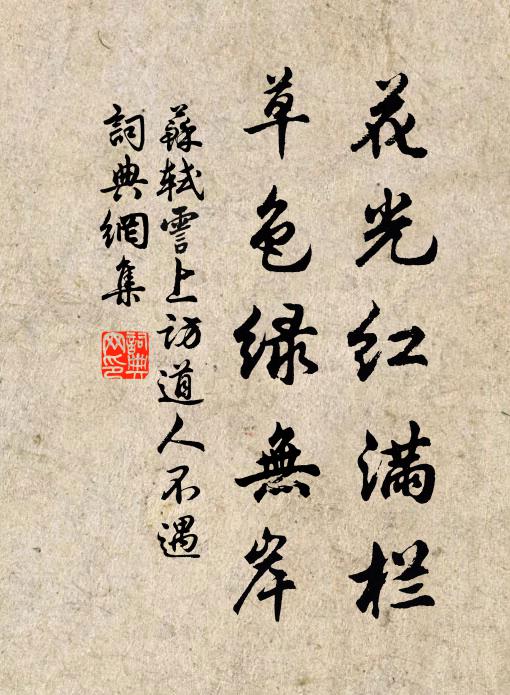 花光红满栏
草色绿無岸
蘇轼雪上訪道人不遇
詞典網集
詞典
网印